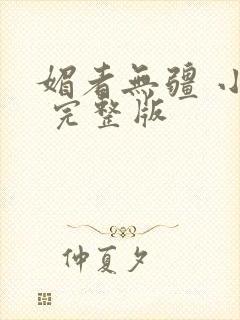 媚者無疆 小
完整版
仲夏夕